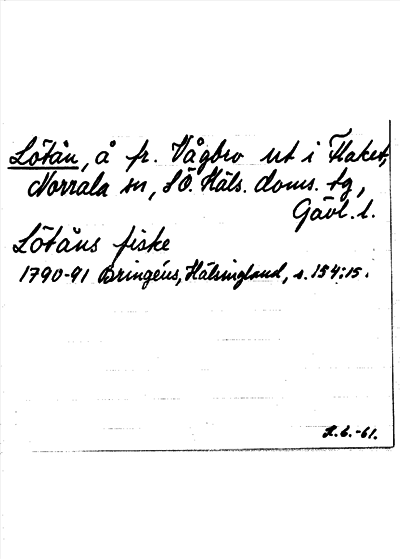 Lötån, å fr. Vågbro ut i Flaket,
Norrala sn, SÖ. Häls. doms. tg,
Gävl. l.
Lötåns fiske
1790-91 Bringéus, Hälsingland, s. 154:15.
-61.